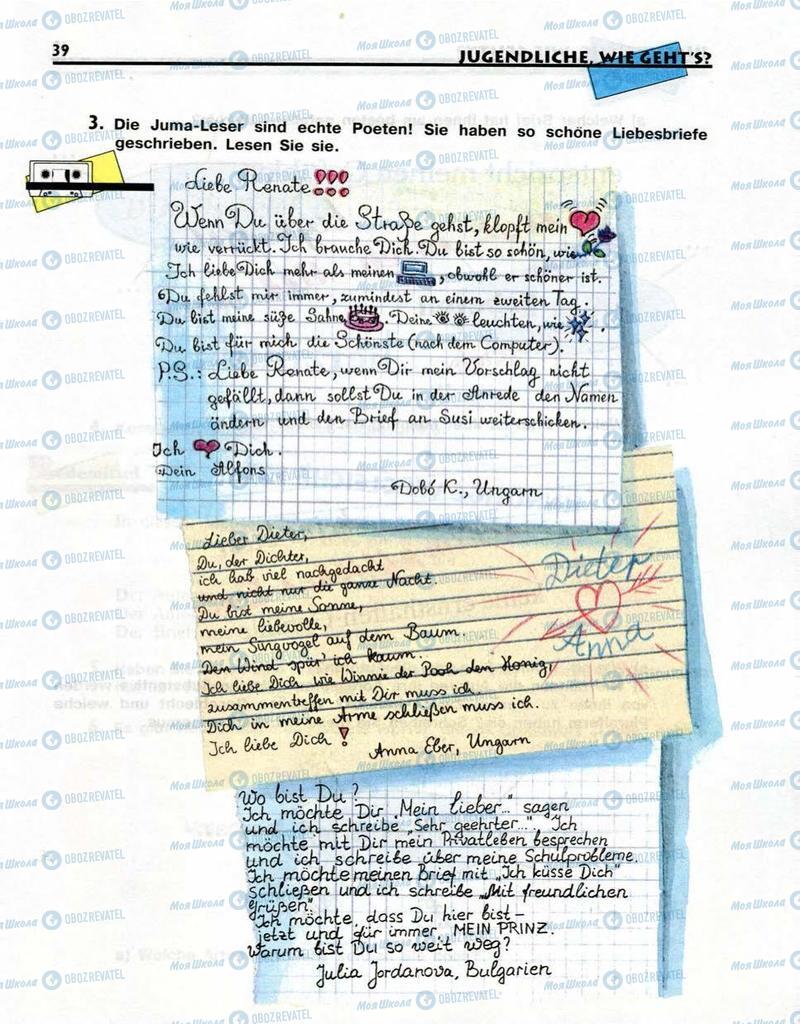 39
JUGENDLICHE, WIE GEHT'S?
3. Die Juma-Leser sind echte Poeten! Sie haben so schöne Liebesbriefe
geschrieben. Lesen Sie sie.
Liebe Renate!!!
Wenn Du über die Straße gehst, klopft mein
wie verrückt. Ich brauche Dich. Du bist so schön, wie
Ich liebe Dich mehr als meinen , obwohl er schöner ist.
Du fehlst mir immer, zumindest an einem zweiten Tag.
Du bist meine süße Sahne . Deine leuchten, wie .
Du bist für mich die Schönste (nach dem Computer).
P.S.: Liebe Renate, wenn Dir mein Vorschlag nicht
gefällt, dann sollst Du in der Anrede den Namen
ändern und den Brief an Susi weiterschicken.
Ich Dich.
Dein Alfons
Dobó K., Ungarn
Lieber Dieter,
Du, der Dichter,
ich hab viel nachgedacht
und nicht nur die ganze Nacht.
Du bist meine Sonne,
meine liebevolle,
mein Singvogel auf dem Baum.
Den Wind spür' ich kaum.
Ich liebe Dich wie Winnie der Pooh den Honig,
zusammentreffen mit Dir muss ich.
Dich in meine Arme schließen muss ich.
Ich liebe Dich!
Anna Eber, Ungarn
Dieter
Anna
Wo bist Du?
Ich möchte Dir "Mein lieber..." sagen
und ich schreibe "Sehr geehrter...". Ich
möchte mit Dir mein Privatleben besprechen
und ich schreibe über meine Schulprobleme.
Ich möchte meinen Brief mit "Ich küsse Dich"
schließen und ich schreibe "Mit freundlichen
Grüßen".
Ich möchte, dass Du hier bist –
jetzt und für immer, MEIN PRINZ.
Warum bist Du so weit weg?
Julia Jordanova, Bulgarien
МояШкола OBOZREVATEL